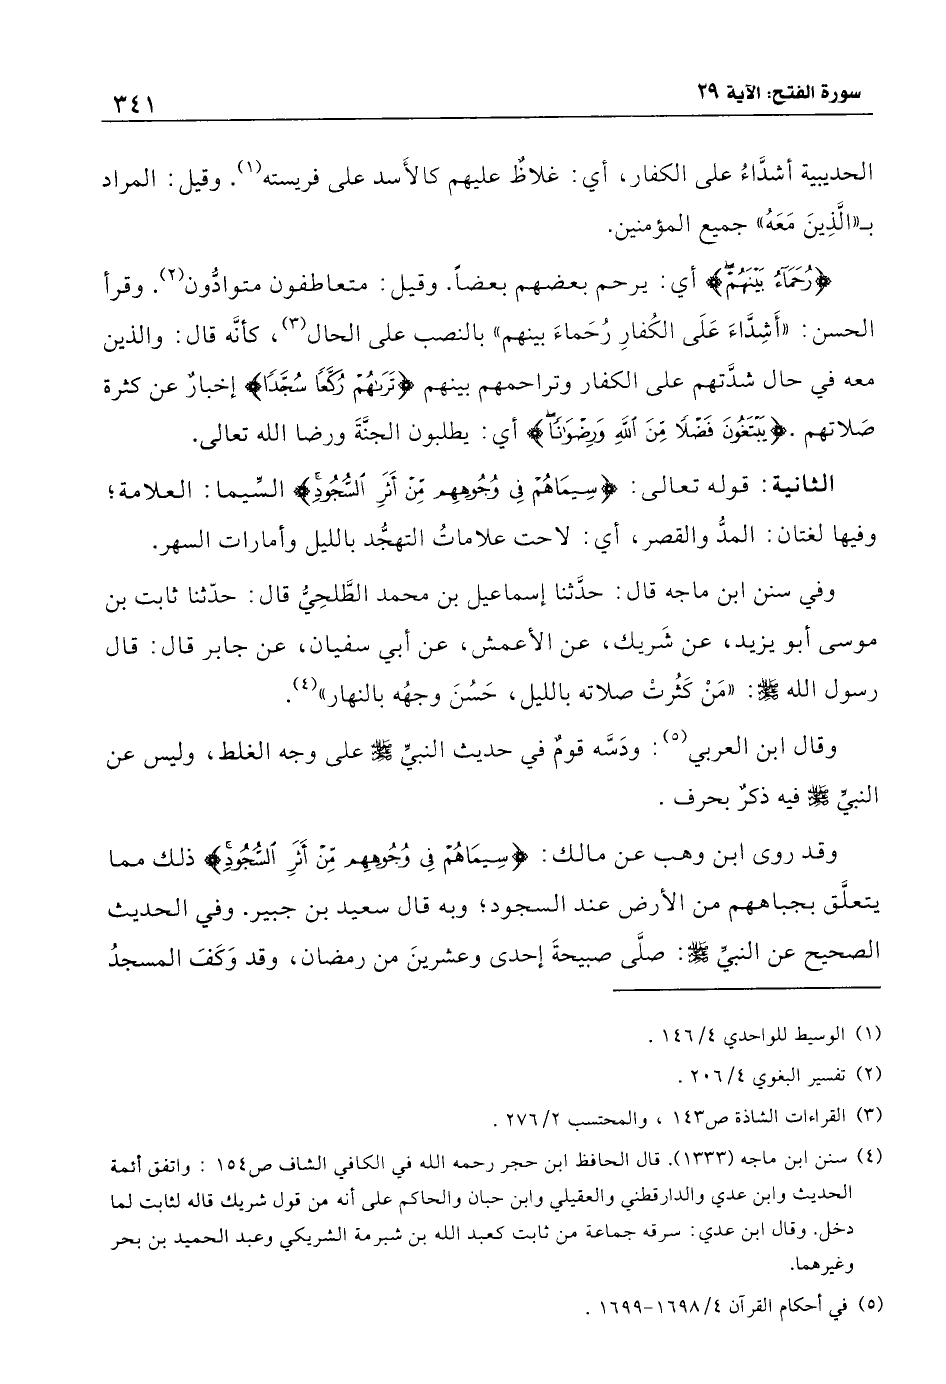 سورة الفتح: الآية ٢٩
٣٤١
الحديبية أشدَّاءُ على الكفار، أي: غلاظٌ عليهم كالأَسد على فريسته(١). وقيل: المراد
بـ«الَّذِينَ مَعَهُ» جميع المؤمنين.
﴿رُحَمَآءُ بَيْنَهُمْۖ﴾ أي: يرحم بعضهم بعضاً. وقيل: متعاطفون متوادُّون(٢). وقرأ
الحسن: «أَشِدَّاءَ عَلَى الكُفارِ رُحَماءَ بينهم» بالنصب على الحال(٣)، كأنَّه قال: والذين
معه في حال شدَّتهم على الكفار وتراحمهم بينهم ﴿تَرَىٰهُمْ رُكَّعًا سُجَّدًا﴾ إخبارٌ عن كثرة
صَلاتهم .﴿يَبْتَغُونَ فَضْلًا مِّنَ ٱللَّهِ وَرِضْوَٰنًاۖ﴾ أي: يطلبون الجنَّةَ ورضا الله تعالى.
الثانية: قوله تعالى: ﴿سِيمَاهُمْ فِى وُجُوهِهِم مِّنْ أَثَرِ ٱلسُّجُودِۚ﴾ السِّيما: العلامة؛
وفيها لغتان: المدُّ والقصر، أي: لاحت علاماتُ التهجُّد بالليل وأمارات السهر.
وفي سنن ابن ماجه قال: حدَّثنا إسماعيل بن محمد الطَّلحِيُّ قال: حدّثنا ثابت بن
موسى أبو يزيد، عن شَريك، عن الأعمش، عن أبي سفيان، عن جابر قال: قال
رسول الله ﷺ: «مَنْ كَثُرتْ صلاته بالليل، حَسُنَ وجهُه بالنهار»(٤).
وقال ابن العربي(٥): ودَسَّه قومٌ في حديث النبيِّ ﷺ على وجه الغلط، وليس عن
النبيِّ ﷺ فيه ذكرٌ بحرف .
وقد روى ابن وهب عن مالك: ﴿سِيمَاهُمْ فِى وُجُوهِهِم مِّنْ أَثَرِ ٱلسُّجُودِۚ﴾ ذلك مما
يتعلَّق بجباههم من الأرض عند السجود؛ وبه قال سعيد بن جبير. وفي الحديث
الصحيح عن النبيِّ ﷺ: صلَّى صبيحةَ إحدى وعشرينَ من رمضان، وقد وَكَفَ المسجدُ
(١) الوسيط للواحدي ٤/ ١٤٦ .
(٢) تفسير البغوي ٤/ ٢٠٦ .
(٣) القراءات الشاذة ص١٤٣ ، والمحتسب ٢/ ٢٧٦ .
(٤) سنن ابن ماجه (١٣٣٣). قال الحافظ ابن حجر رحمه الله في الكافي الشاف ص١٥٤ : واتفق أئمة
الحديث وابن عدي والدارقطني والعقيلي وابن حبان والحاكم على أنه من قول شريك قاله لثابت لما
دخل. وقال ابن عدي: سرقه جماعة من ثابت كعبد الله بن شبرمة الشريكي وعبد الحميد بن بحر
وغيرهما.
(٥) في أحكام القرآن ٤/ ١٦٩٨-١٦٩٩ .